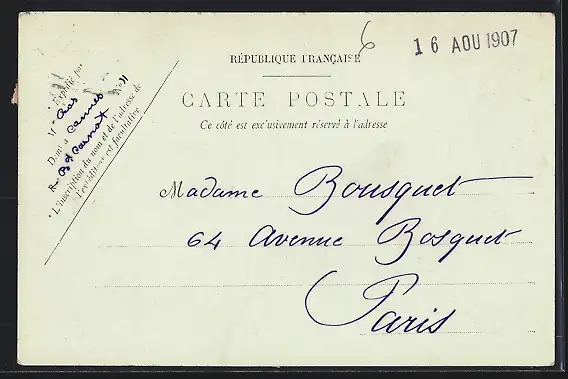 6
16 AOU 1907
RÉPUBLIQUE FRANÇAISE
CARTE POSTALE
Ce côté est exclusivement réservé à l'adresse
Expédié par
M Cros
Dem.t à Cannes
R. Bd Carnot N° 11
* L'inscription du nom et de l'adresse de
l'expéditeur est facultative
Madame Bousquet
64 Avenue Bosquet
Paris